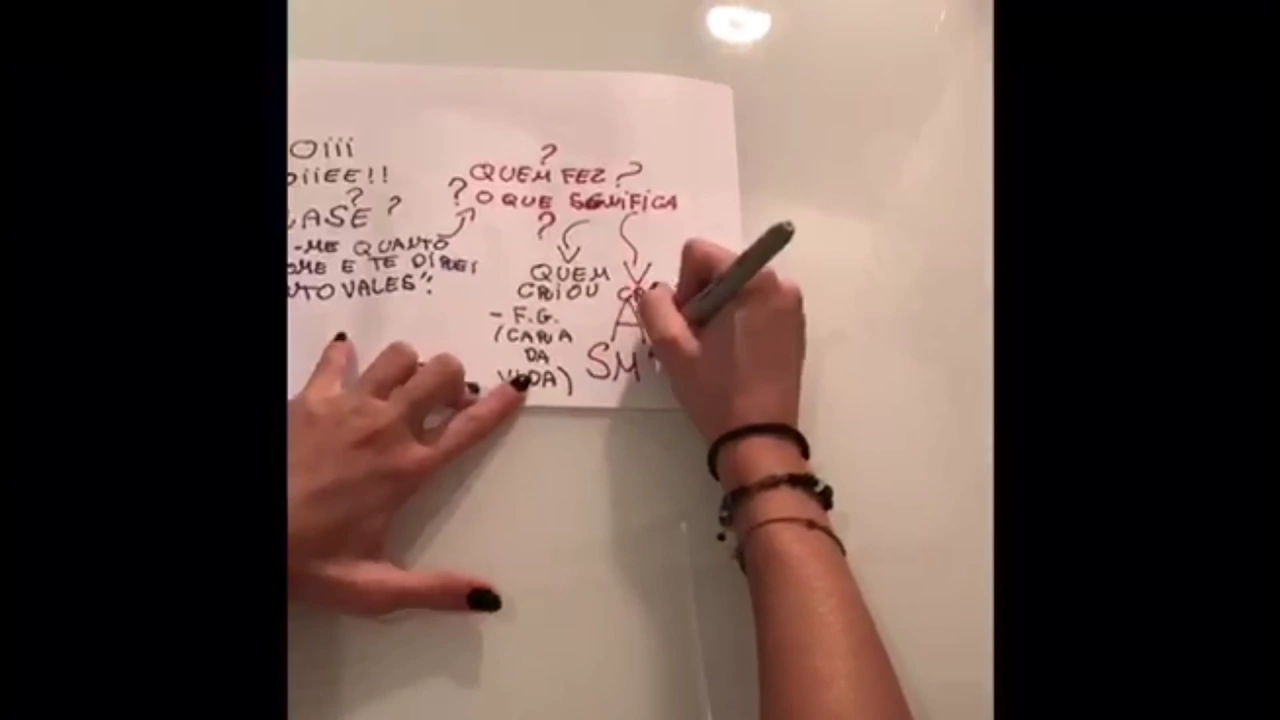 OIII
OIIEE!!
?
LASE ?
-ME QUANTO
OME E TE DIREI
NTO VALES".
?
QUEM FEZ ?
? O QUE SGNIFICA
?
QUEM
CRIOU
- F.G.
(CARA
DA
VIDA)
A
SM